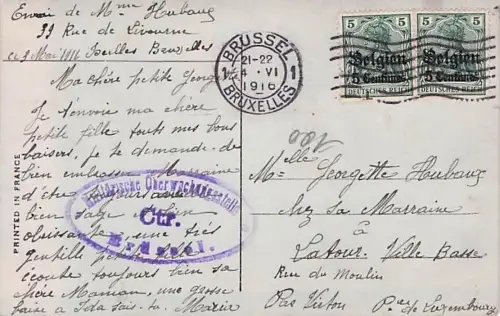 Envoi de Mme Hubaux
39 Rue de Livourne
ce 3 Mai 1916 Ixelles Bruxelles
Ma chère petite Georgette
Je t'envoie ma chère
petite fille touts mes bons
baisers, je te demande de
bien embrasser Marraine
d'être
bien sage et bien
obéissante, une très
gentille petite fille
écoute toujours bien sa
chère Maman, une grosse
baise a Ida sais-tu. Maria
PRINTED IN FRANCE
BRUSSEL
1 21-22 1
4 - VI
1916
BRUXELLES
5 5
Belgien
5 Centimes
DEUTSCHES REICH
5 5
Belgien
5 Centimes
DEUTSCHES REICH
100
Militärische Überwachungsstelle
Ctr.
Brüssel.
Melle Georgette Hubaux
chez sa Marraine
à
Latour. Ville Basse
Rue du Moulin
Par Virton Pce de Luxembourg